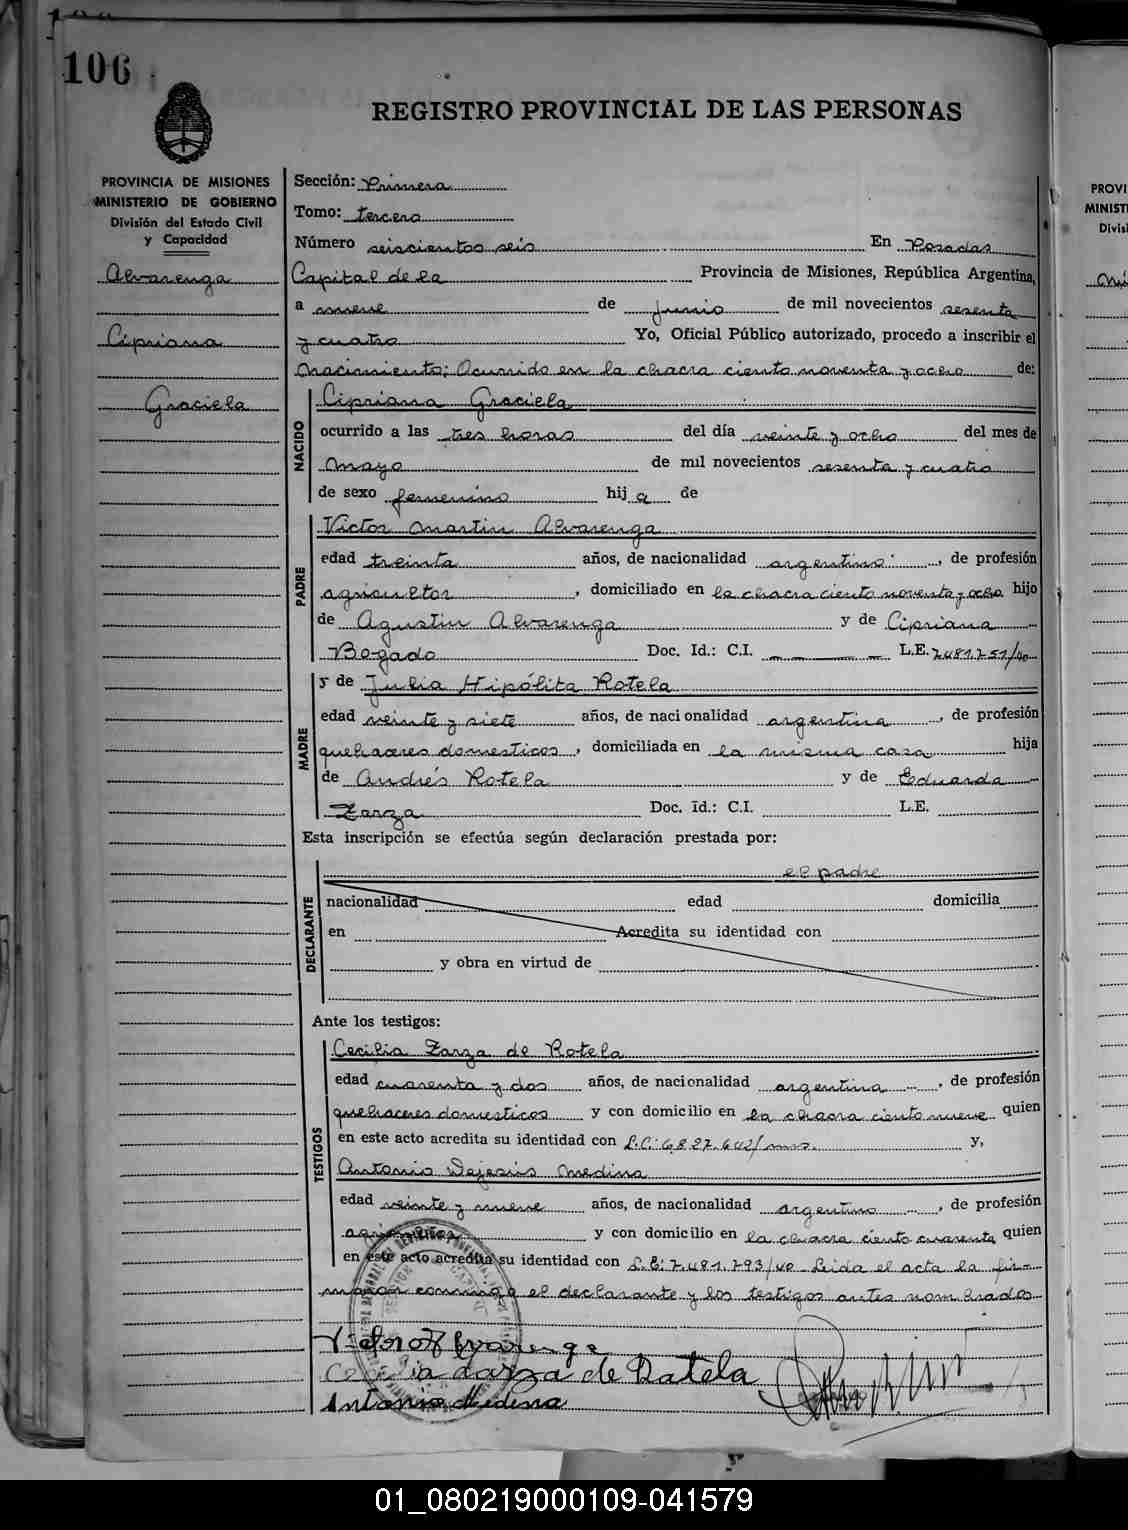 106
REGISTRO PROVINCIAL DE LAS PERSONAS
PROVINCIA DE MISIONES
MINISTERIO DE GOBIERNO
División del Estado Civil
y Capacidad
Alvarenga
Cipriana
Graciela
Sección: Primera
Tomo: tercero
Número seiscientos seis En Posadas
Capital de la Provincia de Misiones, República Argentina,
a nueve de Junio de mil novecientos sesenta
y cuatro Yo, Oficial Público autorizado, procedo a inscribir el
nacimiento: Ocurrido en la chacra ciento noventa y ocho de:
NACIDO
Cipriana Graciela
ocurrido a las tres horas del día veinte y ocho del mes de
mayo de mil novecientos sesenta y cuatro
de sexo femenino hija de
PADRE
Victor Martin Alvarenga
edad treinta años, de nacionalidad argentino, de profesión
agricultor, domiciliado en la chacra ciento noventa y ocho hijo
de Agustin Alvarenga y de Cipriana
Bogado Doc. Id.: C.I. L.E. 7481.751/40
MADRE
y de Julia Hipólita Rotela
edad veinte y siete años, de nacionalidad argentina, de profesión
quehaceres domesticos, domiciliada en la misma casa hija
de Andrés Rotela y de Eduarda
Zarza Doc. Id.: C.I. L.E.
Esta inscripción se efectúa según declaración prestada por:
DECLARANTE
el padre
nacionalidad edad domicilia
en Acredita su identidad con
y obra en virtud de
Ante los testigos:
TESTIGOS
Cecilia Zarza de Rotela
edad cuarenta y dos años, de nacionalidad argentina, de profesión
quehaceres domesticos y con domicilio en la chacra ciento nueve quien
en este acto acredita su identidad con L.C: 6.827.642/ y,
Antonio Dejesús Medina
edad veinte y nueve años, de nacionalidad argentino, de profesión
y con domicilio en la chacra ciento cuarenta quien
en este acto acredita su identidad con L.E: 7.481.793/40 Leida el acta la fir-
maron conmigo el declarante y los testigos antes nombrados
Victor Alvarenga
Cecilia Zarza de Ratela
Antonio Medina
PROVI
MINIST
Divis
01_080219000109-041579